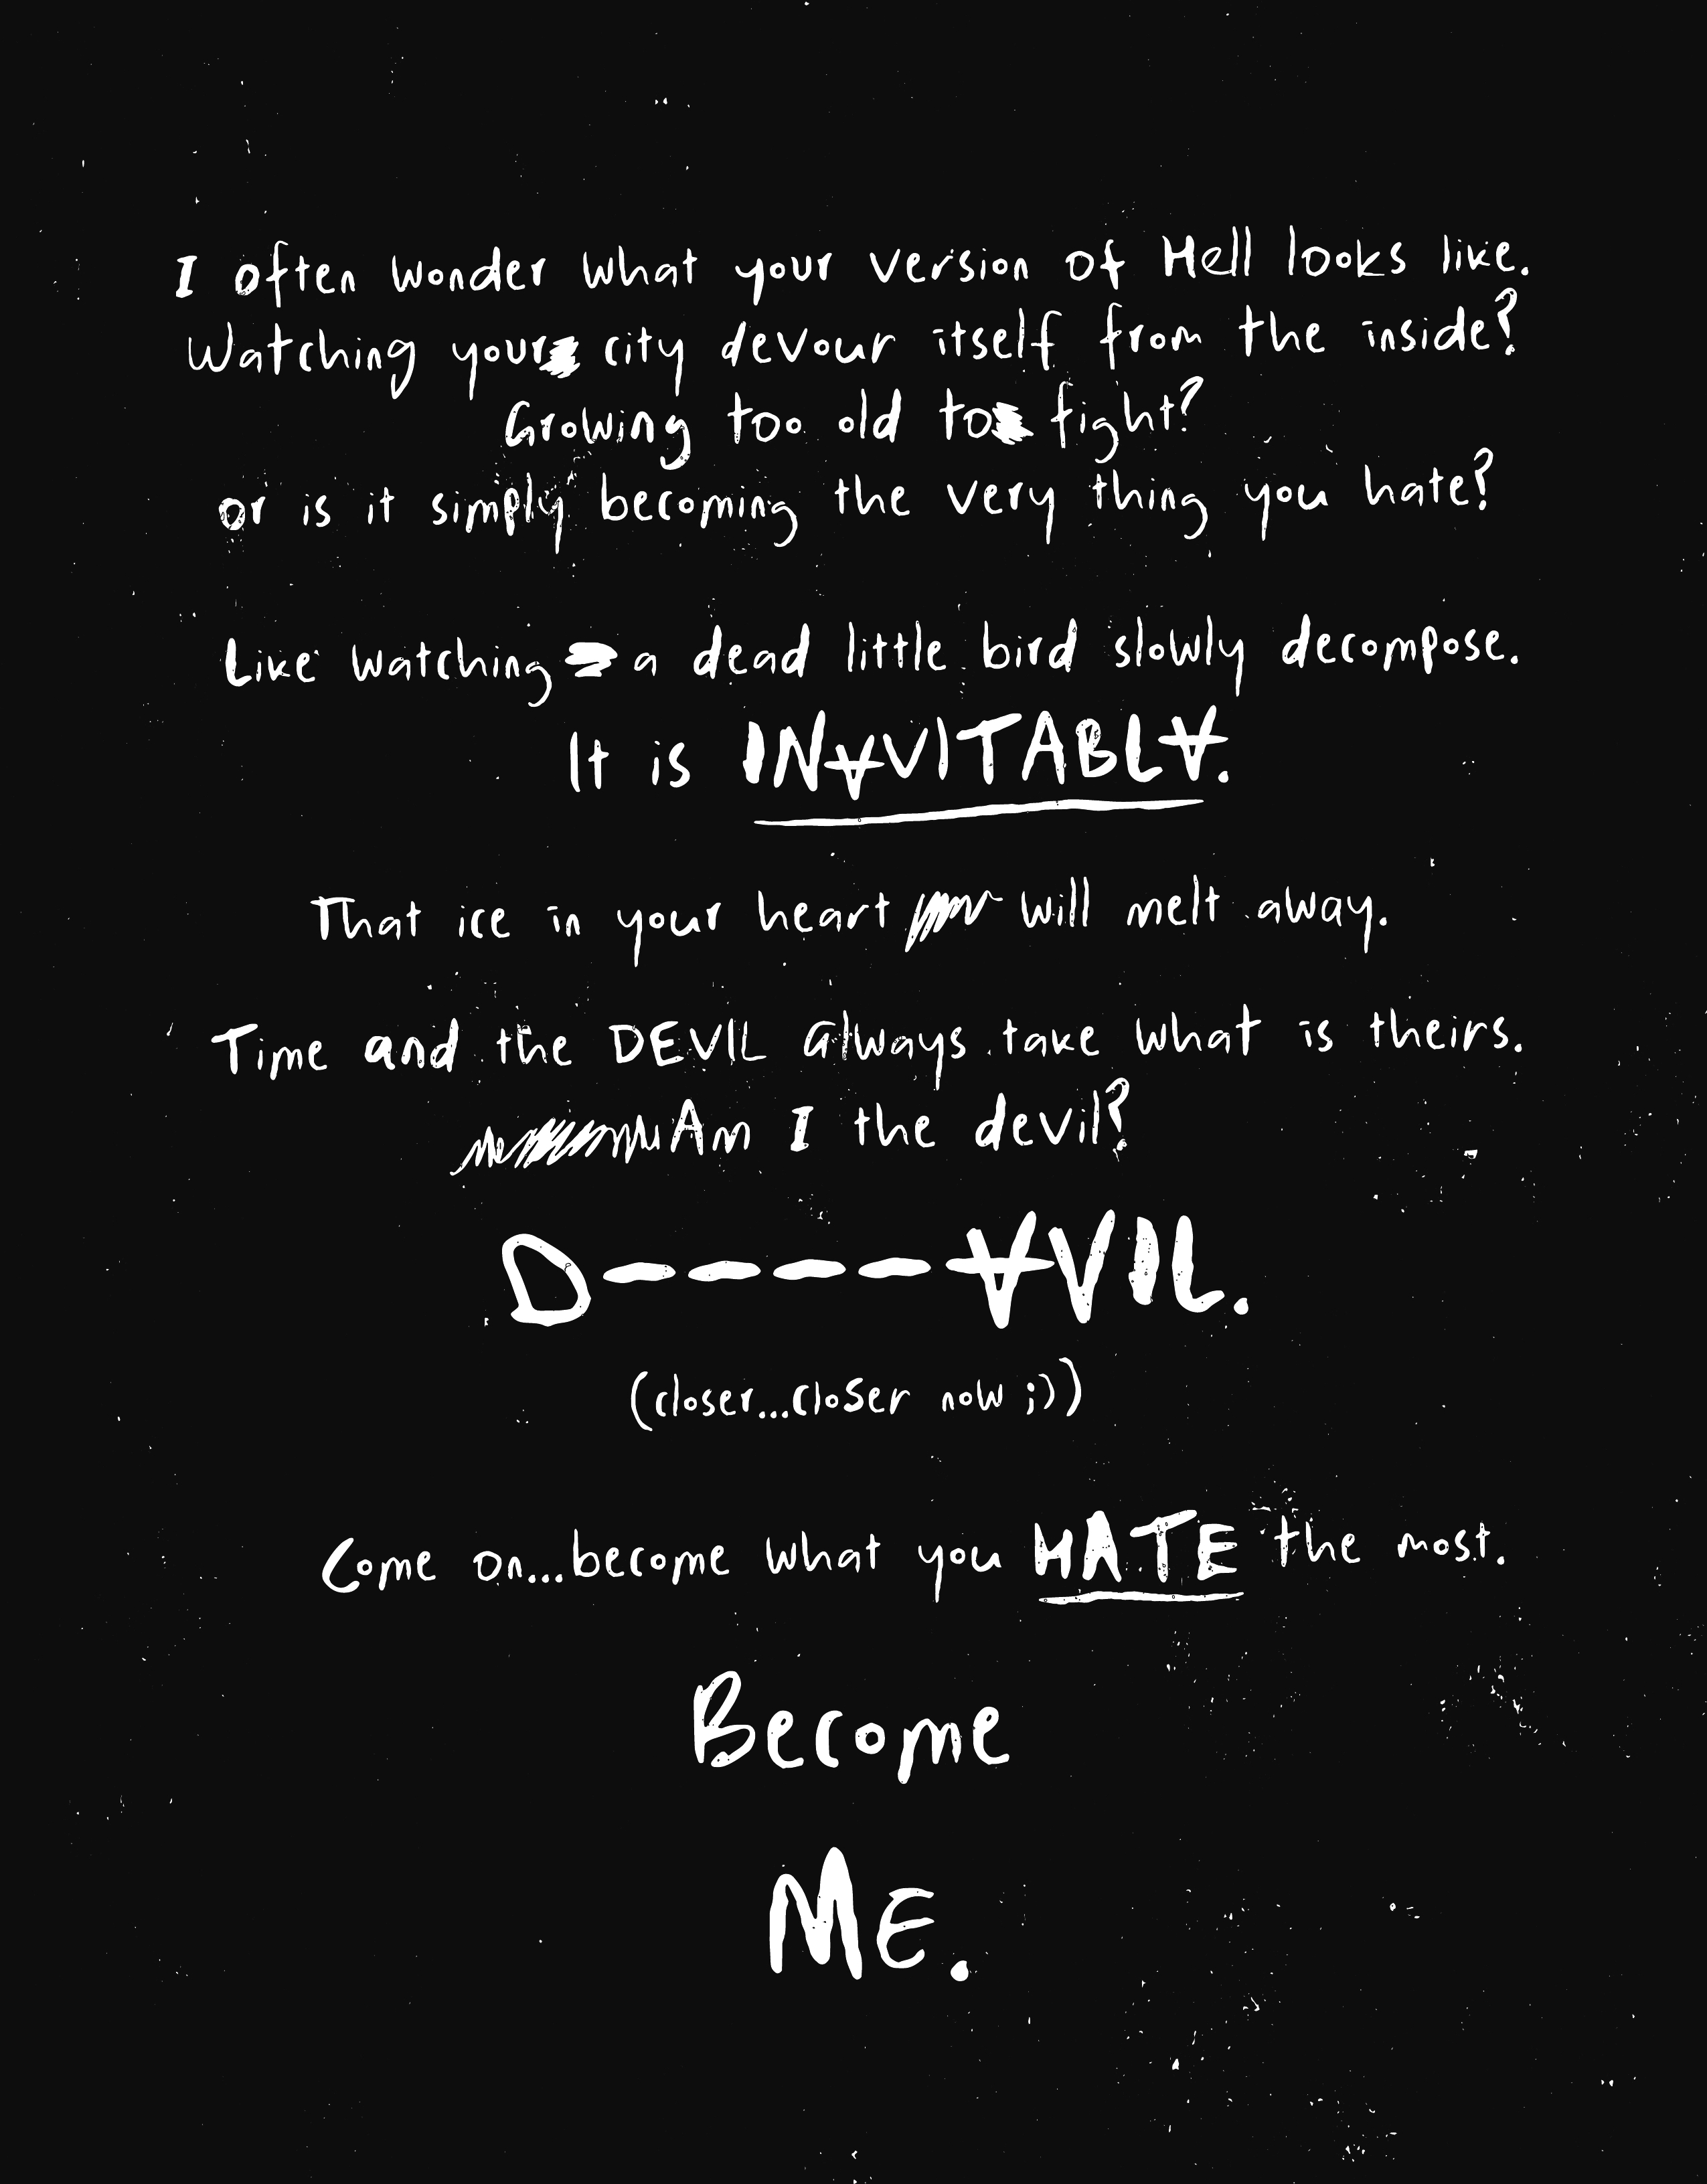 I often wonder what your version of Hell looks like.
Watching your city devour itself from the inside?
Growing too old to fight?
or is it simply becoming the very thing you hate?
Like watching a dead little bird slowly decompose.
It is IN∀VITABL∀.
That ice in your heart will melt away.
Time and the DEVIL always take what is theirs.
Am I the devil?
D----∀VIL.
(closer...closer now ;))
Come on...become what you HATE the most.
Become
ME.